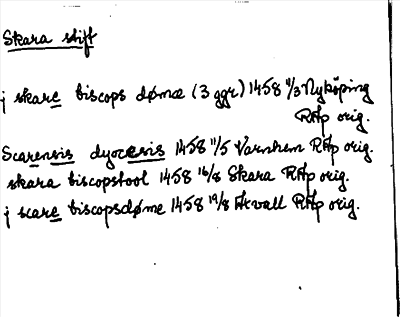 Skara stift
j skare biscops dømæ (3 ggr) 1458 11/3 Nyköping
RAp orig.
Scarensis dyocesis 1458 11/5 Varnhem RAp orig.
skara biscopstool 1458 16/8 Skara RAp orig.
j scare biscopsdøme 1458 19/8 Akvall RAp orig.